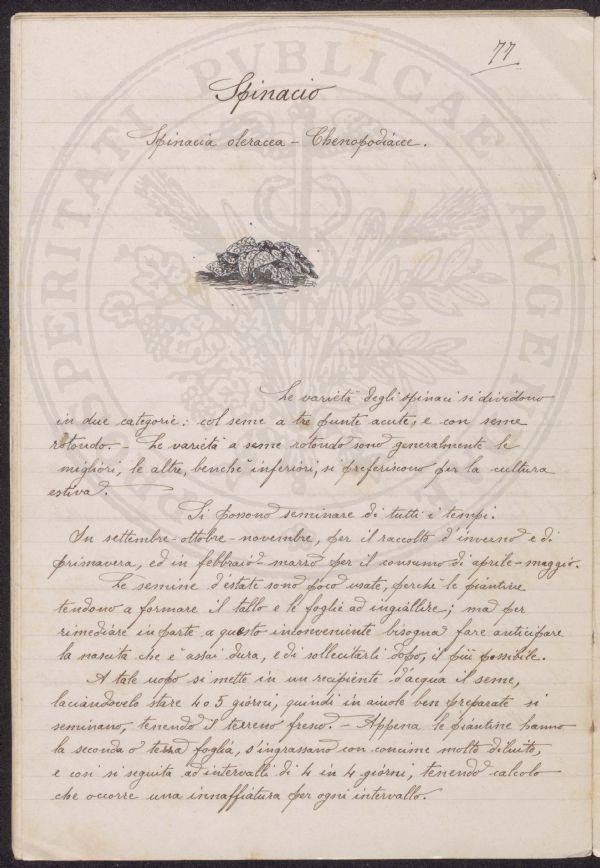 77
Spinacio
Spinacia oleracea - Chenopodiacee.
Le varietà degli spinaci si dividono
in due categorie: col seme a tre punte acute, e con seme
rotondo. - Le varietà a seme rotondo sono generalmente le
migliori, le altre, benchè inferiori, si preferiscono per la cultura
estiva.
Si possono seminare di tutti i tempi.
In settembre - ottobre - novembre, per il raccolto d'inverno e di
primavera, ed in febbraio - marzo per il consumo di aprile - maggio.
Le semine d'estate sono poco usate, perchè le piantine
tendono a formare il tallo e le foglie ad ingiallire; ma per
rimediare in parte a questo inconveniente bisogna fare anticipare
la nascita che è assai dura, e di sollecitarli dopo, il più possibile.
A tale uopo si mette in un recipiente d'acqua il seme,
laciandovelo stare 4 o 5 giorni, quindi in aiuole ben preparate si
seminano, tenendo il terreno fresco. - Appena le piantine hanno
la seconda o terza foglia, s'ingrassano con concime molto diluito,
e così si seguita ad intervalli di 4 in 4 giorni, tenendo calcolo
che occorre una innaffiatura per ogni intervallo.
PERITATI PUBLICAE AUGEN